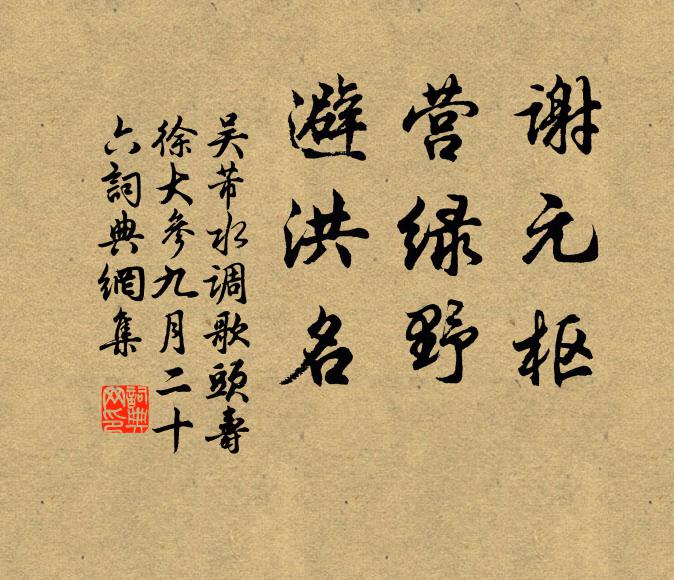 谢元枢
营绿野
避洪名
吴芾水调歌頭壽
徐大參九月二十
六詞典網集
詞典
网印